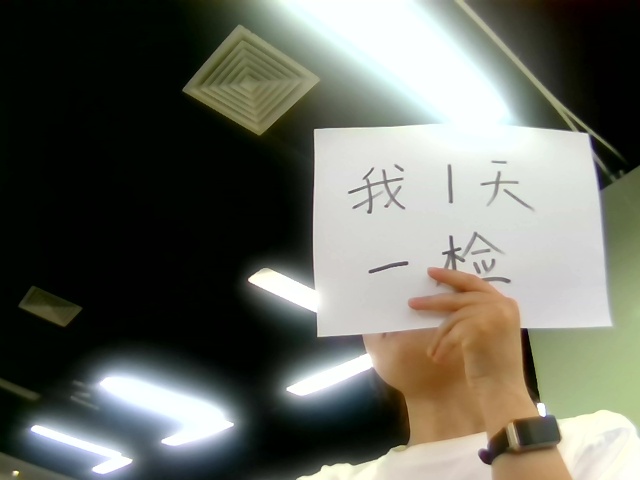 我1天
一检